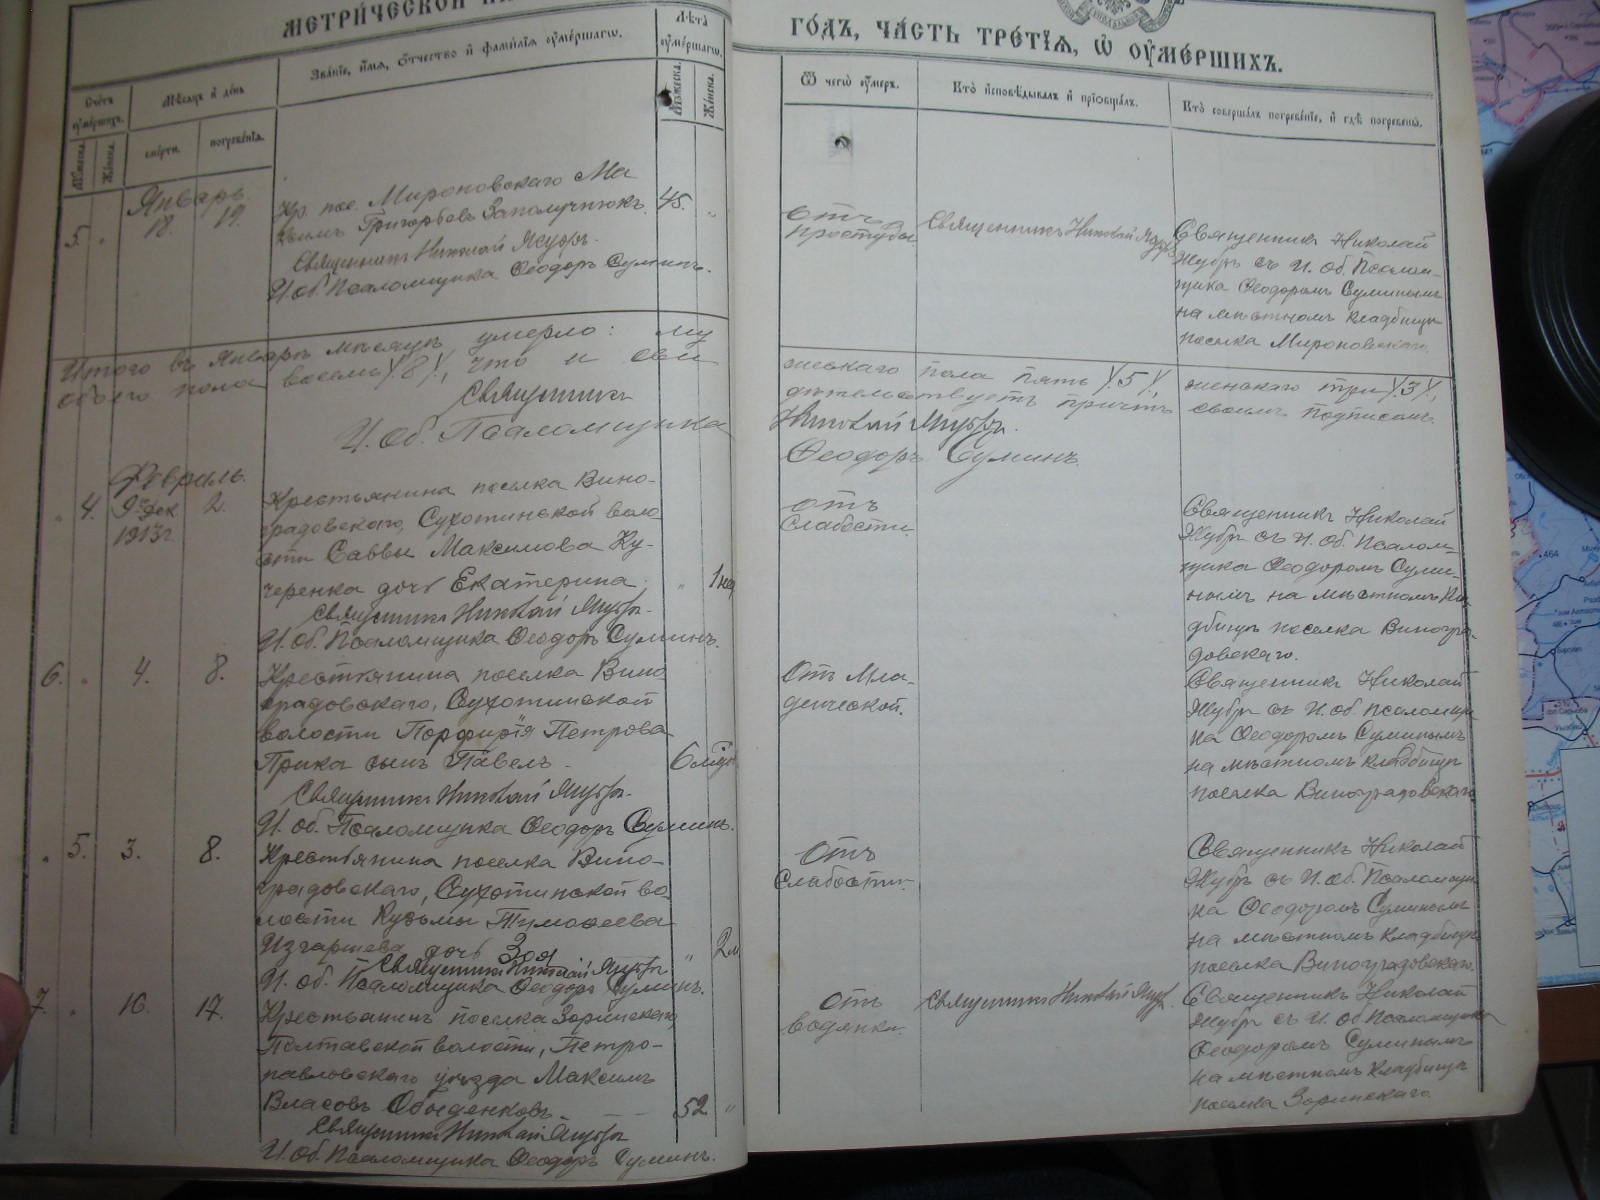 МЕТРИ́ЧЕСКОЙ
ГО́ДЪ, ЧА́СТЬ ТРЕ́ТІѦ, Ѡ҆ ОУ҆МЕ́РШИХЪ.
Сче́тъ оу҆ме́ршихъ.
Мѣ́сяцъ и҆ де́нь
Зва́ніе, и҆́мѧ, ѻ҆́тчество и҆ фами́лїѧ оу҆ме́ршагѡ.
Лѣ́та оу҆ме́ршагѡ.
Ѿ чегѡ̀ оу҆́меръ.
Кто̀ и҆сповѣ́дывалъ и҆ прїѡбща́лъ.
Кто̀ соверша́лъ погребе́нїе, и҆ гдѣ̀ погребены̀.
Мꙋ́жеска.
Же́нска.
сме́рти.
погребе́нїѧ.
Мꙋ́жеска.
Же́нска.
Январь.
5. „ 18. 19.
Кр. пос. Мироновскаго Ма
ксимъ Григорьевъ 45. „
Священникъ Николай
И. об. Псаломщика Ѳеодоръ Суминъ.
Отъ
простуды.
Священникъ Николай
Священникъ Николай
съ И. об. Псалом-
щика Ѳеодоромъ Суминымъ
на мѣстномъ кладбищѣ
поселка Мироновскаго.
Итого въ Январѣ мѣсяцѣ умерло: му
жескаго пола пять /5/, женскаго три /3/,
обоего пола восемь /8/, что и сви
дѣтельствуетъ причтъ своимъ подписомъ.
Священникъ Николай
И. об. Псаломщика Ѳеодоръ Суминъ.
Февраль.
„ 4. 9го дек 2.
1913 г
Крестьянина поселка Вино-
градовскаго, Сухотинской воло
сти Саввы Максимова Ку-
черенка дочь Екатерина. „ 1 нед
Священникъ Николай
И. об. Псаломщика Ѳеодоръ Суминъ.
отъ
слабости.
Священникъ Николай
съ И. об. Псалом-
щика Ѳеодоромъ Суми-
нымъ на мѣстномъ кла
дбищѣ поселка Виногра-
довскаго.
6. „ 4. 8.
Крестьянина поселка Вино
градовскаго, Сухотинской
волости Порфирія Петрова
сынъ Павелъ. 6 мѣс
Священникъ Николай
И. об. Псаломщика Ѳеодоръ Суминъ.
Отъ Мла-
денческой.
Священникъ Николай
съ И. об. Псаломщи
ка Ѳеодоромъ Суминымъ
на мѣстномъ кладбищѣ
поселка Виноградовскаго
„ 5. 3. 8.
Крестьянина поселка Вино-
градовскаго, Сухотинской во-
лости Кузьмы Тимоѳеева
дочь Зоя „ 2 м
Священникъ Николай
И. об. Псаломщика Ѳеодоръ Суминъ.
Отъ
слабости.
Священникъ Николай
съ И. об. Псаломщи
ка Ѳеодоромъ Суминымъ
на мѣстномъ кладбищѣ
поселка Виноградовскаго.
7. „ 16. 17.
Крестьянинъ поселка Зоринскаго,
Полтавской волости, Петро-
павловскаго уѣзда Максимъ
Власовъ Обыденковъ. 52 „
Священникъ Николай
И. об. Псаломщика Ѳеодоръ Суминъ.
Отъ
водянки.
Священникъ Николай
Священникъ Николай
съ И. об. Псаломщика
Ѳеодоромъ Суминымъ
на мѣстномъ кладбищѣ
поселка Зоринскаго